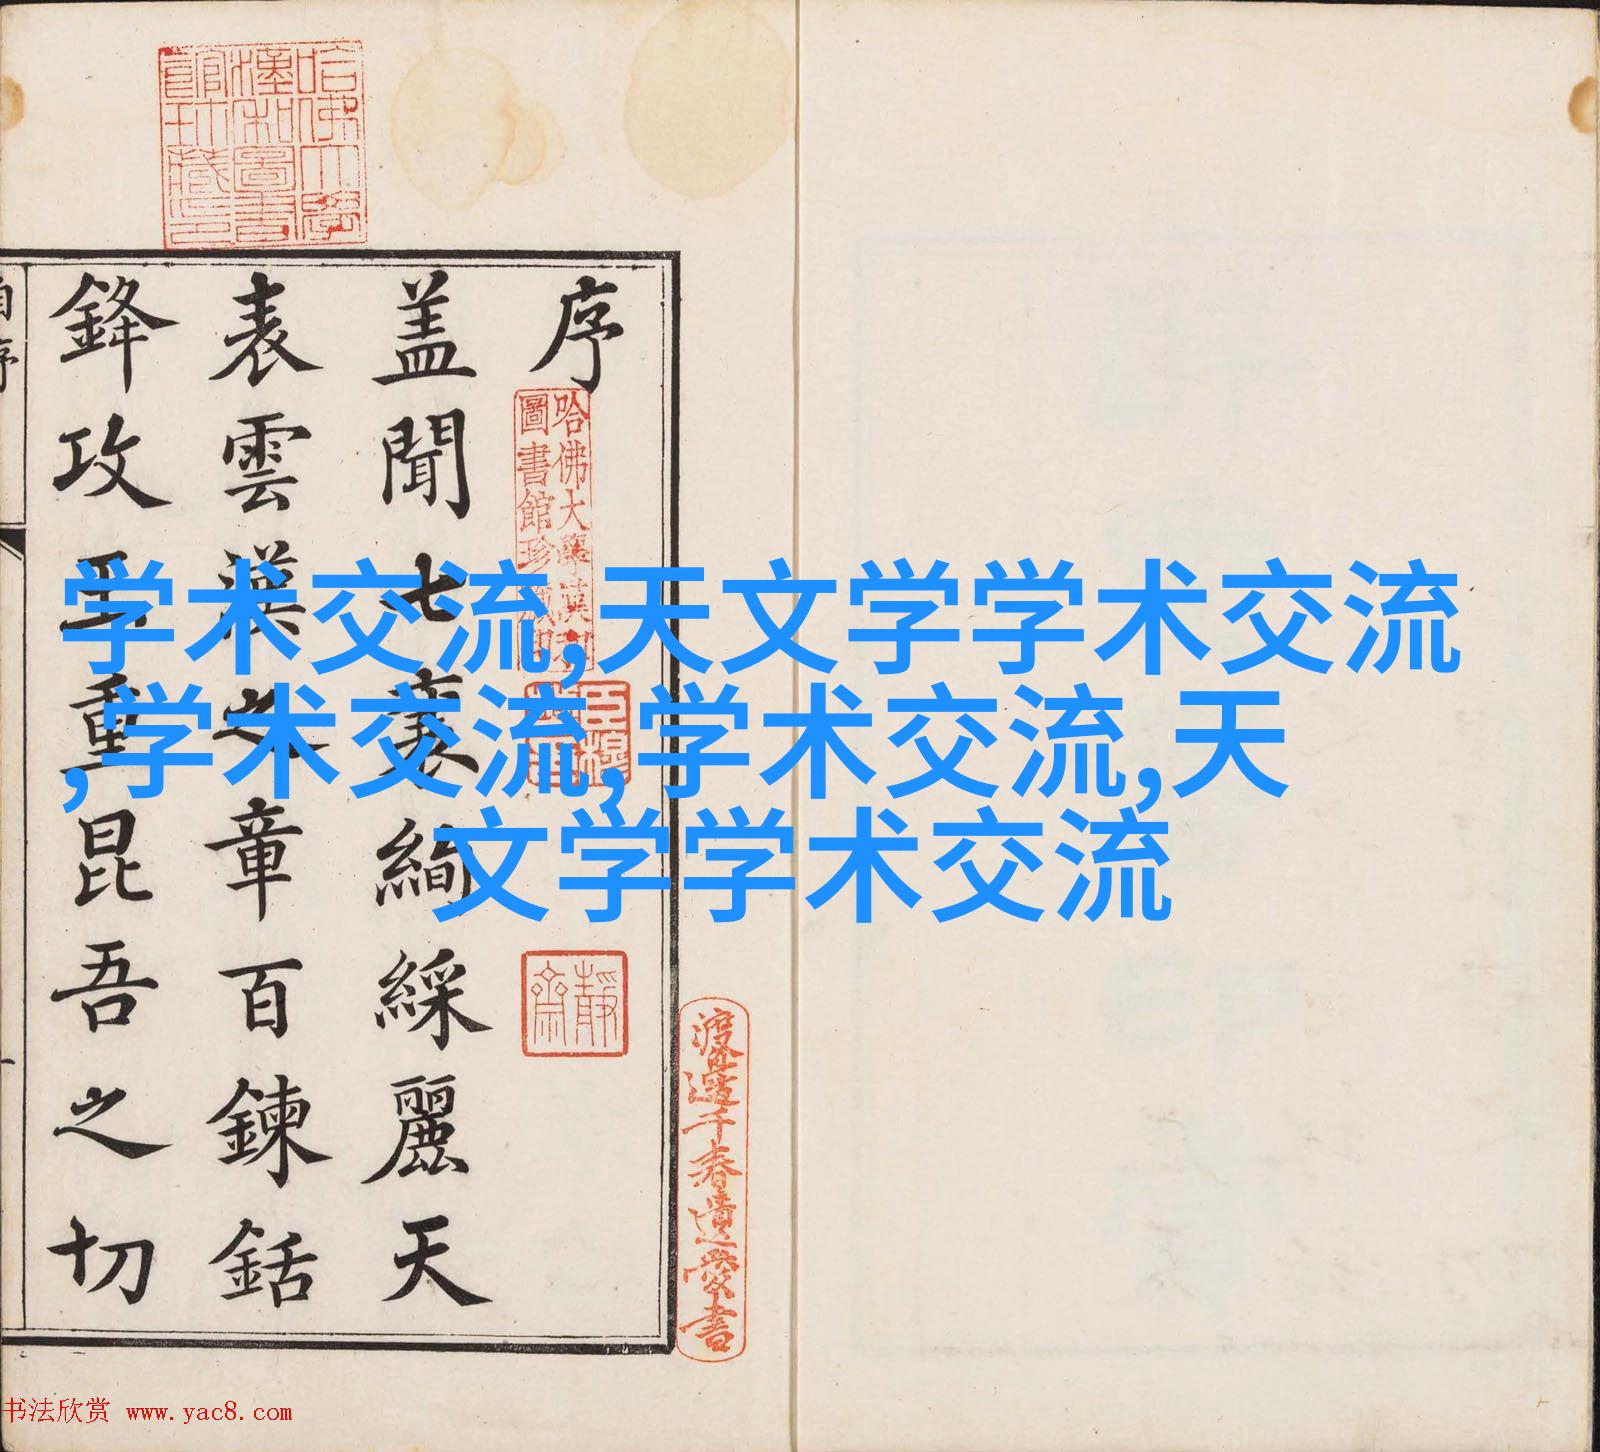 序
蓋聞七襄絢綵麗天
表雲漢之章百鍊銛
鋒攻玉重昆吾之切
自序
哈佛大學漢和圖書館珍藏印
哈佛大學漢和
圖書館珍藏印
靜齋
渡邊千春遺愛書
学术交流,天文学学术交流
,学术交流,学术交流,天
文学学术交流
书法欣赏 www.yac8.com